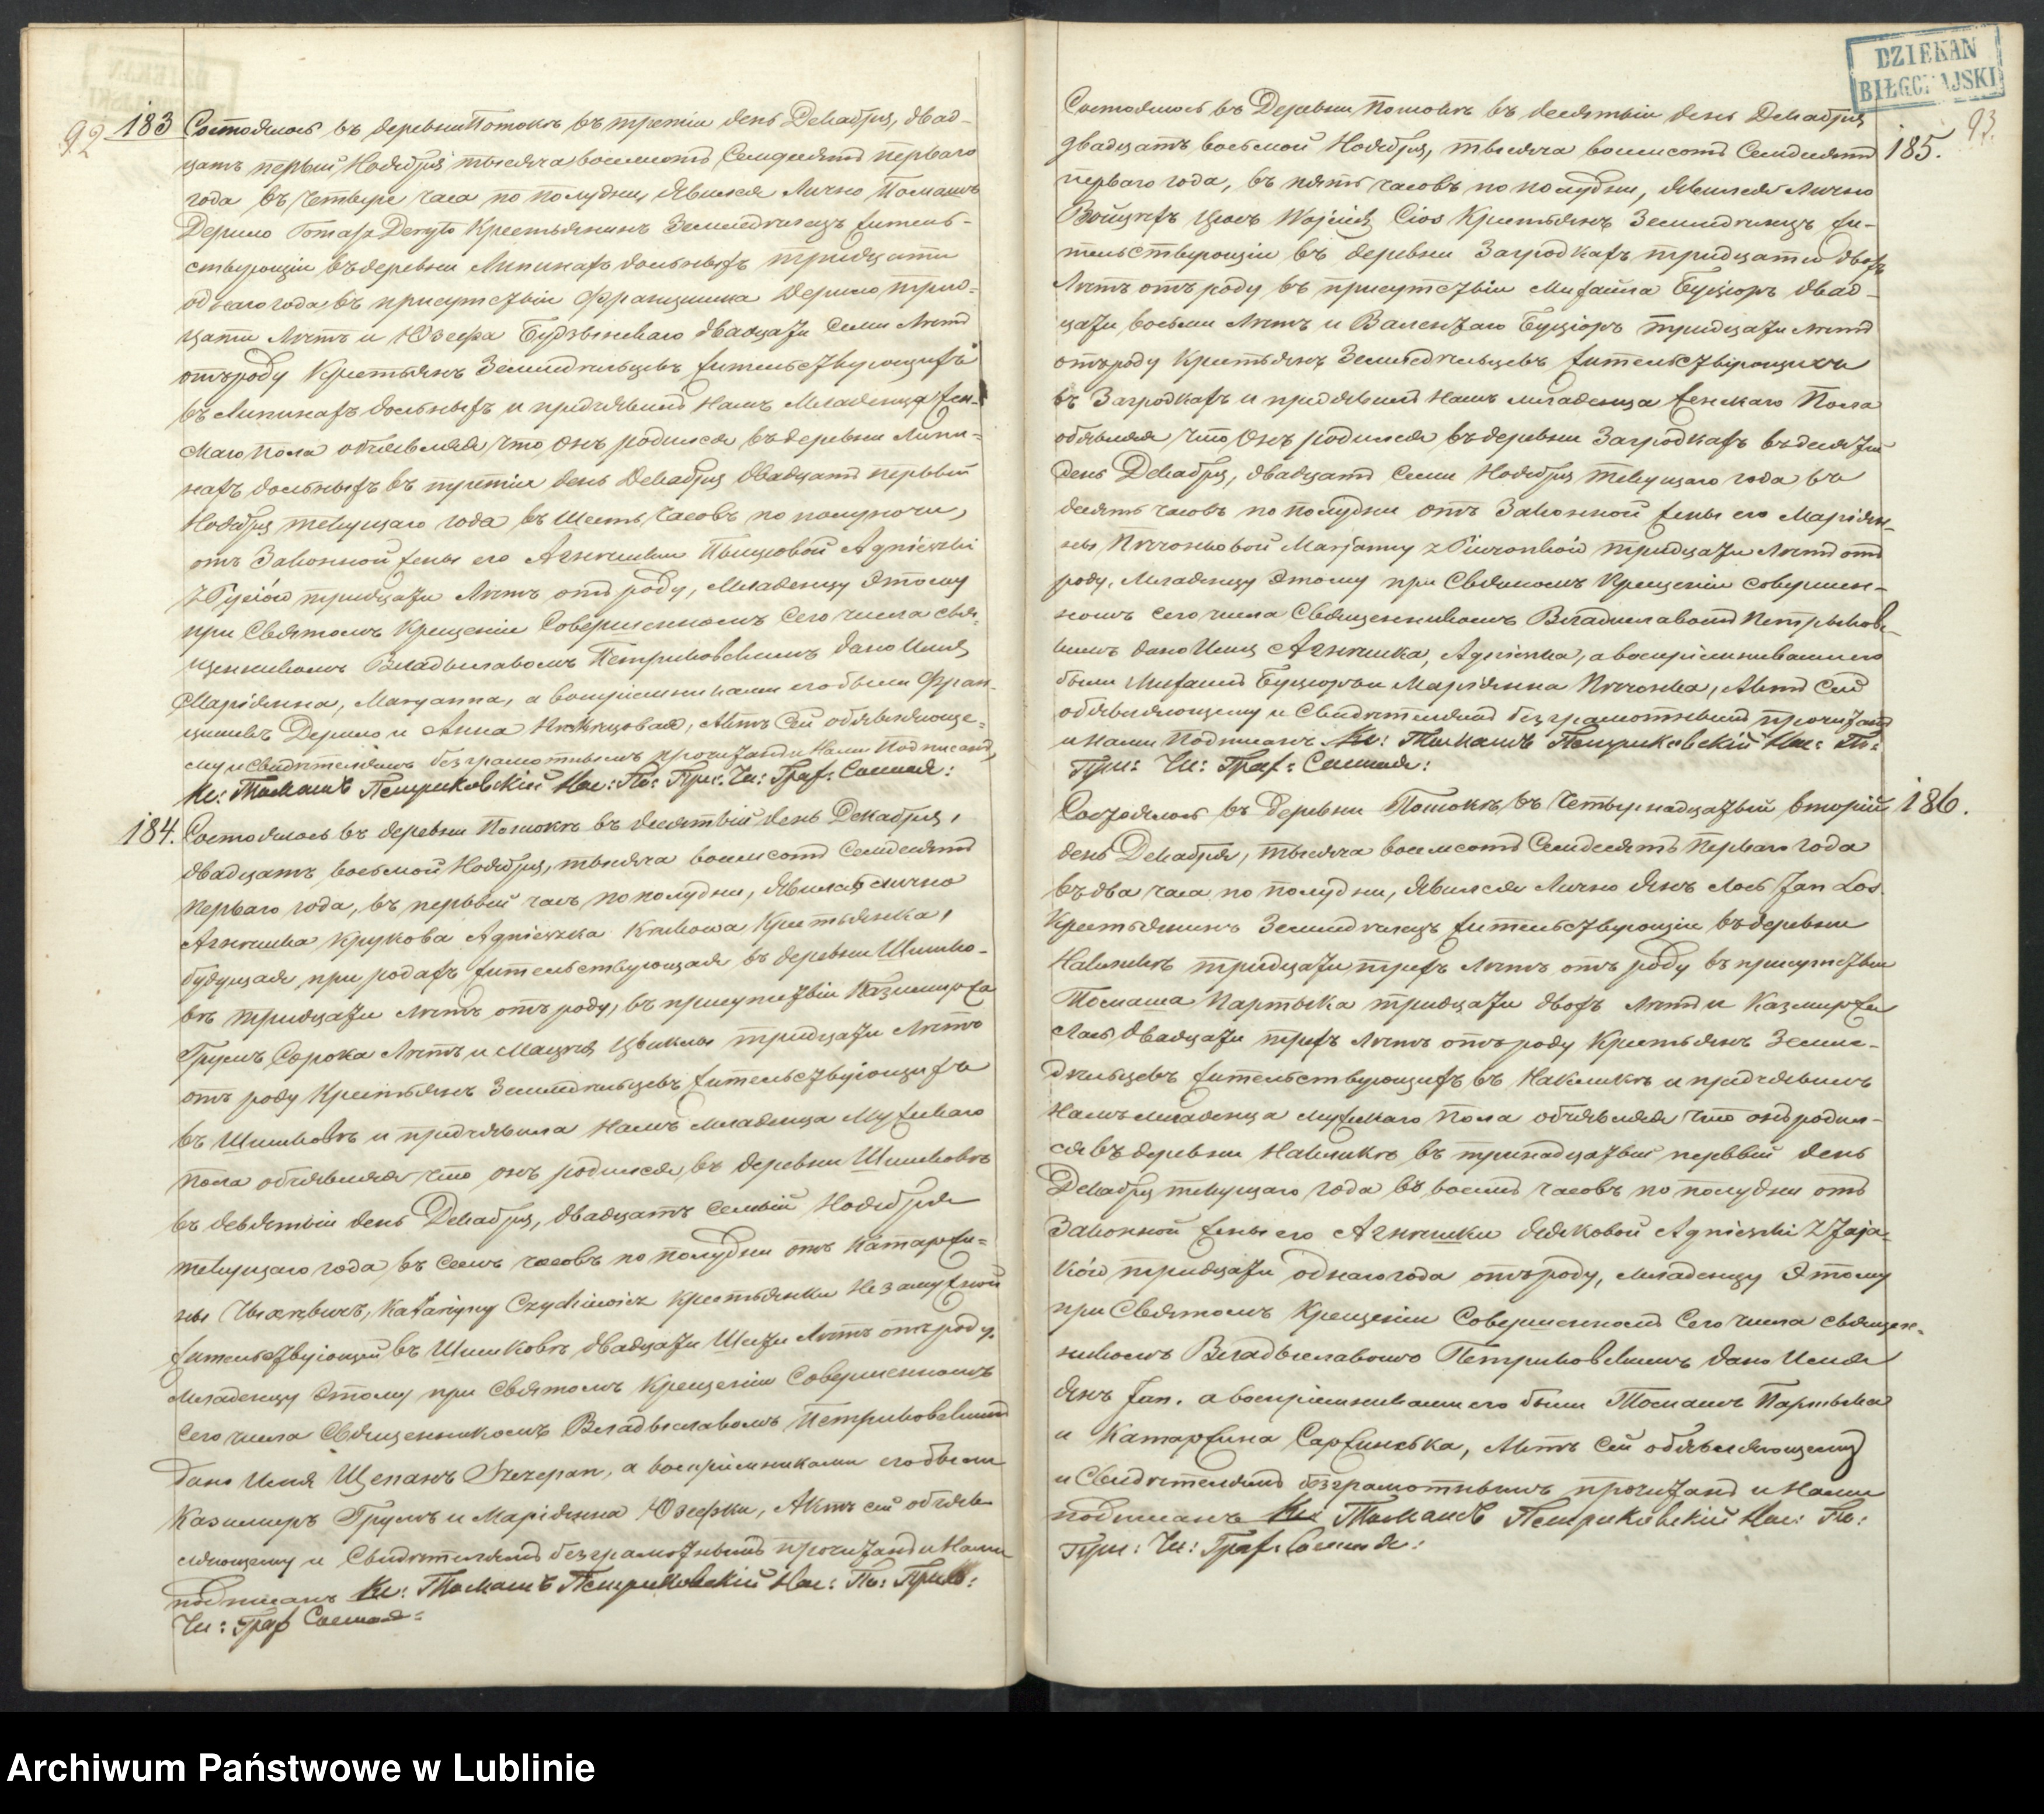 92
183
Состоялось въ деревни Потокѣ въ третіи день Декабря, двад-
цать первый Ноября тысяча восемсотъ Семдесятъ перваго
года въ четыре часа по полудни, явился Лично Томашъ
Дерило Tomasz Deryło Крестьянинъ Земледѣлецъ житель-
ствующіи въ деревни Липинахъ дольныхъ тридцати
одного года, въ присутствіи Францишка Дерило трид-
цати Лѣтъ и Юзефа двадцати Семи Лѣтъ
отъ роду Крестьянъ Земледѣльцевъ жительствующихъ
въ Липинахъ дольныхъ и предъявилъ Намъ Младенца жен-
скаго пола объявляя что онъ родился въ деревни Липи-
нахъ дольныхъ въ третіи день Декабря двадцать первый
Ноября текущаго года въ Шесть Часовъ по полуночи,
отъ Законной жены его Агнѣшки Agnieszki
тридцати Лѣтъ отъ роду, Младенцу этому
при Святомъ Крещеніи Совершенномъ Сего числа Свя-
щенникомъ Владыславомъ Петриковскимъ дано Имя
Маріянна, Maryanna, а воспріемниками его были Фран-
цишекъ Дерило и Анна, Актъ Сей объявляюще-
му и Свидѣтелямъ безграмотнымъ прочитанъ и Нами Подписанъ,
Кс: Томашъ Петриковскій Нас: По: При: Чи: Граж: Состоя:
184.
Состоялось въ деревни Потокѣ въ десятый день Декабря,
двадцать восьмой Ноября, тысяча восемсотъ Семдесятъ
перваго года, въ первый часъ по полудни, явилась лично
Агнѣшка Крукова Agnieszka Krukowa Крестьянка,
будущая при родахъ жительствующая въ деревни Шишко-
вѣ тридцати Лѣтъ отъ роду, въ присутствіи Казимиржа
Сорока Лѣтъ и Мацѣя Цвикла тридцати Лѣтъ
отъ роду Крестьянъ Земледѣльцевъ жительствующихъ
въ Шишковѣ и предъявила Намъ Младенца Мужескаго
пола объявляя что онъ родился въ деревни Шишковѣ
въ девятый день Декабря, двадцать Семый Ноября
текущаго года въ семъ часовъ по полудни отъ Катаржи-
ны Katarzyny Крестьянки Незамужной
жительствующей въ Шишковѣ двадцати Шести Лѣтъ отъ роду.
Младенцу этому при Святомъ Крещеніи Совершенномъ
Сего числа Священникомъ Владыславомъ Петриковскимъ
дано Имя Щепанъ Szczepan, а воспріемниками его были
Казимиръ и Маріянна, Актъ сей объяв-
ляющему и Свидѣтелямъ безграмотнымъ прочитанъ и Нами
подписанъ Кс: Томашъ Петриковскій Нас: По: При:
Чи: Граж Состоя:
DZIEKAN
BIŁGORAJSKI
93.
185.
Состоялось въ Деревни Потокѣ въ десятый день Декабря
двадцать восьмой Ноября, тысяча восемсотъ Семдесятъ
перваго года, въ пять часовъ по полудни, явился Лично
Войцѣхъ Цiосъ Wojciech Cios Крестьянъ Земледѣлецъ жи-
тельствующіи въ деревни Загродкахъ тридцати двохъ
Лѣтъ отъ роду въ присутствіи Михаила Буціоръ двад-
цати восьми Лѣтъ и Валентаго Буціоръ тридцати Лѣтъ
отъ роду Крестьянъ Земледѣльцевъ жительствующихъ
въ Загродкахъ и предъявилъ Намъ младенца женскаго Пола
объявляя что онъ родился въ деревни Загродкахъ въ десятый
день Декабря, двадцать Семи Ноября текущаго года въ
десять часовъ по полудни отъ Законной жены его Маріян-
ны Marjanny тридцати Лѣтъ отъ
роду, Младенцу этому при Святомъ Крещеніи совершен-
номъ сего числа Священникомъ Владиславомъ Петрыковс-
кимъ дано Имя Агнѣшка, Agnieszka, а воспріемниками его
были Михаилъ Буціоръ и Маріянна, Актъ Сей
объявляющему и Свидѣтелямъ безграмотнымъ прочитанъ
и нами Подписанъ Кс: Томашъ Петриковскій Нас: По:
При: Чи: Граж: Состоя:
186.
Состоялось въ Деревни Потокѣ въ четырнадцатый вторій
день Декабря, тысяча восемсотъ Семдесятъ Перваго года
въ два часа по полудни, явился Лично Янъ Лось Jan Łoś.
Крестьянинъ Земледѣлецъ жительствующіи въ деревни
Накликѣ тридцати трехъ Лѣтъ отъ роду въ присутствіи
Томаша Партыка тридцати двохъ Лѣтъ и Казмиржа
Лось двадцати трехъ Лѣтъ отъ роду Крестьянъ Земле-
дѣльцевъ жительствующихъ въ Накликѣ и предъявилъ
Намъ младенца мужескаго пола объявляя что онъ родил-
ся въ деревни Накликѣ въ тринадцатый первый день
Декабря текущаго года въ восемъ часовъ по полудни отъ
Законной жены его Агнѣшки Agnieszki z Zaja-
ków тридцати одного года отъ роду, Младенцу этому
при Святомъ Крещеніи Совершенномъ Сего числа священ-
никомъ Владыславомъ Петриковскимъ дано Имя
Янъ Jan. а воспріемниками его были Томашъ Партыка
и Катаржина, Актъ сей объявляющему
и Свидѣтелямъ безграмотнымъ прочитанъ и Нами
подписанъ Кс: Томашъ Петриковскій Нас: По:
При: Чи: Граж: Состоя:
Archiwum Państwowe w Lublinie